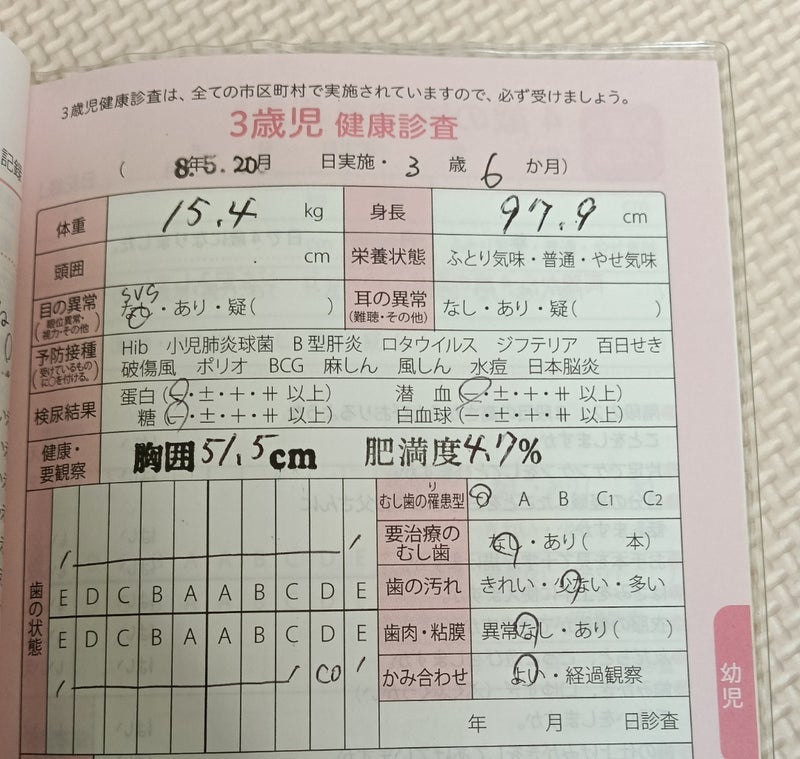 3歳児健康診査は、全ての市区町村で実施されていますので、必ず受けましょう。
3歳児 健康診査
( 8.年5.20月 日実施・3歳6か月)
体重 15.4 kg 身長 97.9 cm
頭囲 . cm 栄養状態 ふとり気味・普通・やせ気味
目の異常 (眼位異常・視力・その他) SVS なし・あり・疑( ) 耳の異常 (難聴・その他) なし・あり・疑( )
予防接種 (受けているものに○を付ける。) Hib 小児肺炎球菌 B型肝炎 ロタウイルス ジフテリア 百日せき
破傷風 ポリオ BCG 麻しん 風しん 水痘 日本脳炎
検尿結果 蛋白(−・±・+・⧺以上) 潜血(−・±・+・⧺以上)
糖(−・±・+・⧺以上) 白血球(−・±・+・⧺以上)
健康・要観察 胸囲51.5cm 肥満度4.7%
歯の状態
E D C B A A B C D E
E D C B A A B C D E
CO
むし歯の罹患型 り O A B C1 C2
要治療のむし歯 なし・あり( 本)
歯の汚れ きれい・少ない・多い
歯肉・粘膜 異常なし・あり( )
かみ合わせ よい・経過観察
年 月 日診査
幼児
記録